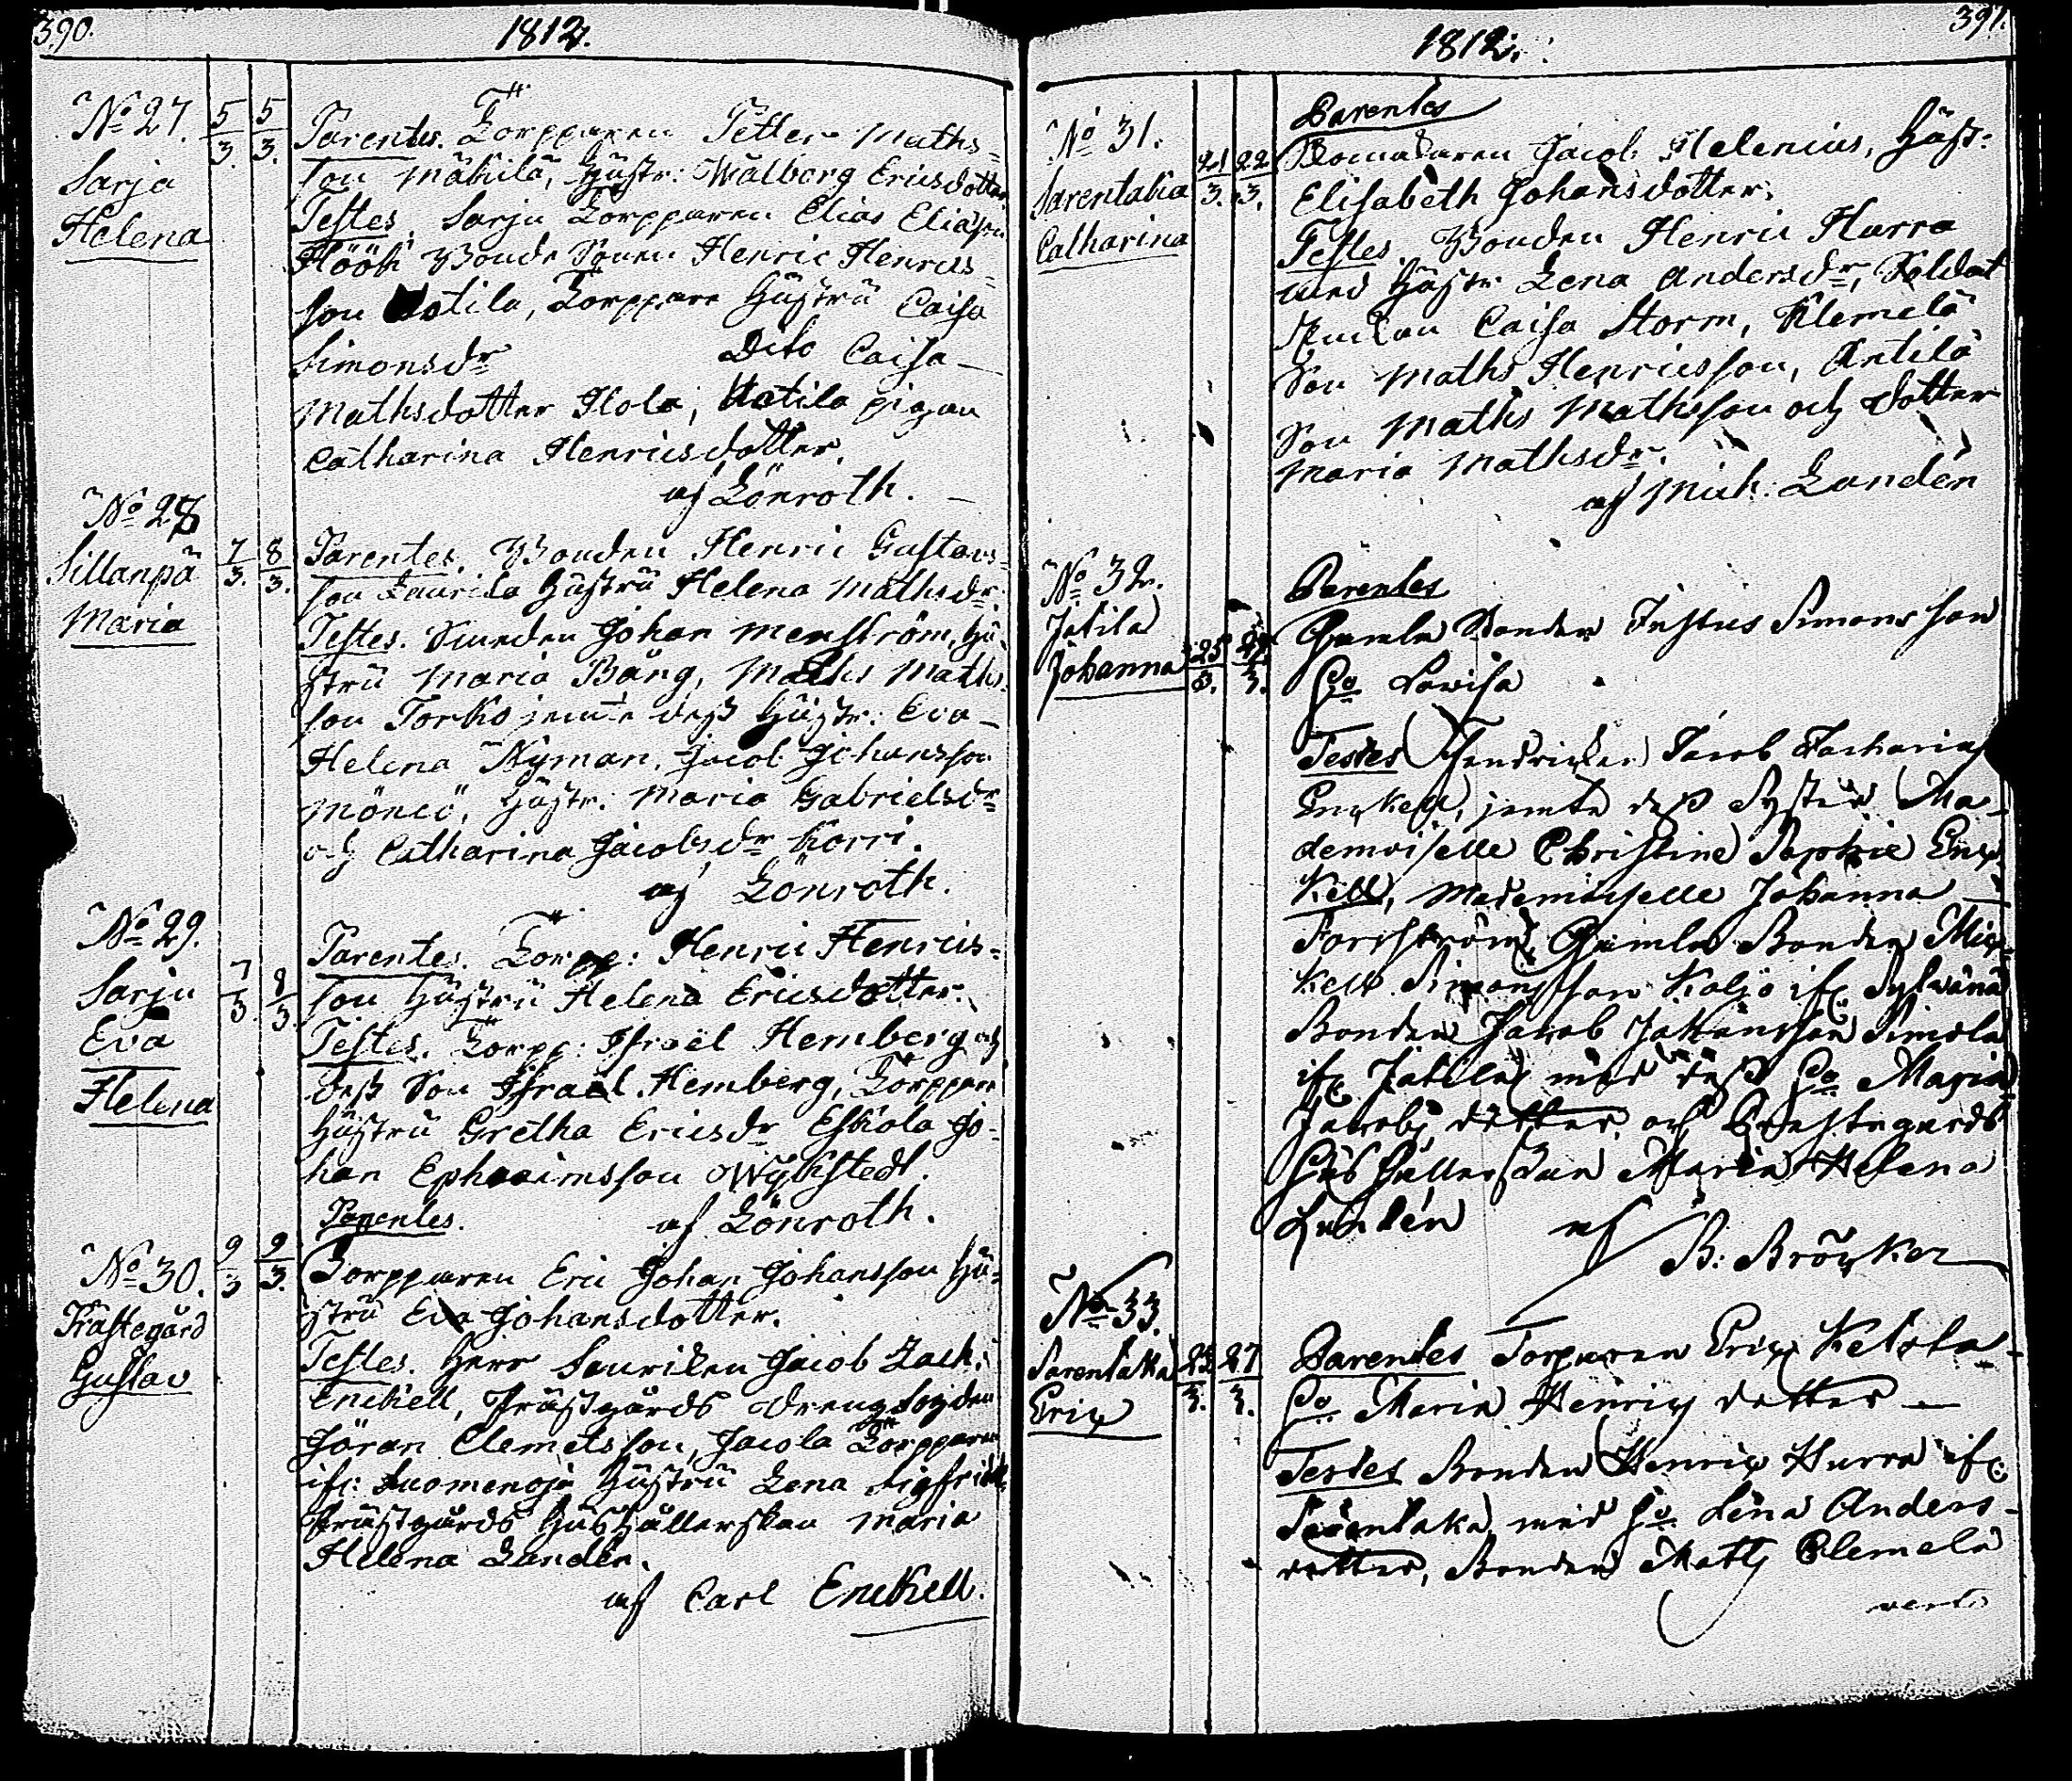 390.
1812.
No 27.
5/3.
5/3.
Sarja
Helena
Parentes. Torpparen Petter Maths-
son Mäkilä, Hustr: Wålborg Ericsdotter
Testes. Sarju Torpparen Elias Eliasson
Höök Bonde Sonen Henric Henrics-
son Uotila, Torppare Hustru Caisa
Simonsdr Dito Caisa
Mathsdotter Hola, Uotila pigan
Catharina Henricsdotter.
af Lönroth.
No 28
7/3.
8/3.
Sillanpä
Maria
Parentes. Bonden Henric Gustavs-
son Laurila Hustru Helena Mathsdr.
Testes. Smeden Johan Menström, Hu-
stru Maria Bång, Maths Maths-
son Torko jemte dess Hustr: Eva
Helena Nyman, Jacob Johansson
Mönciö, Hustr: Maria Gabrielsdr
och Catharina Jacobsdr Korri.
af Lönroth.
No 29.
7/3.
8/3
Sarju
Eva
Helena
Parentes. Torpp: Henric Henrics-
son Hustru Helena Ericsdotter.
Testes. Torpp: Israël Hemberg och
dess Son Israel Hemberg, Torppare
Hustru Gretha Ericsdr Eskola Jo-
han Ephraimsson Wykstedt.
af Lönroth.
No 30.
9/3
9/3.
Prästegård
Gustav
Parentes.
Torpparen Eric Johan Johansson Hu-
stru Eva Johansdotter.
Testes. Herr Jacob Zach:
Enckell, Prästgårds Dreng
Jöran Clemetsson, Jacola Torpparen
ifr: Suomenoja Hustru Lena
Prästgårds Hushållerskan Maria
Helena Landen.
af Carl Enckell.
391.
1812.
No 31.
21/3.
22/3.
Sarentaka
Catharina
Parentes
Jacob Helenius, Hust:
Elisabeth Johansdotter.
Testes. Bonden Henric Hurra
med Hustr Lena Andersdr, Soldat
Enkan Caisa Storm, Klemelä
Son Maths Henricsson, Antila
Son Maths Mathsson och dotter
Maria Mathsdr.
af Mich: Landen
No 32.
25/3.
27/3.
Jatila
Johanna
Parentes
Gamla Bonden Justus Simonsson
Ho Lovisa
Testes Jacob Zacharias
Enckell, jemte dess Syster Ma-
demoiselle Christine Sophie Enc-
kell, Mademoiselle Johanna
Forsström, Gamla Bonden Mic-
kell Simonsson Koljo ifr Sylvänä
Bonden Jacob Johansson Simola
ifr Jatila med dess Ho Maria
Jacobs dotter och Prestegårds
Hushållerskan Maria Helena
Lunden af
B: Bröcker
No 33.
25/3.
27/3.
Sarentaka
Eric
Parentes Torparen Eric Ketola
Ho Maria Henrics dotter
Testes Bonden Henric Hurra ifr:
Sarentaka med Ho Lena Anders-
dotter, Bonden Matts Clemela
verte